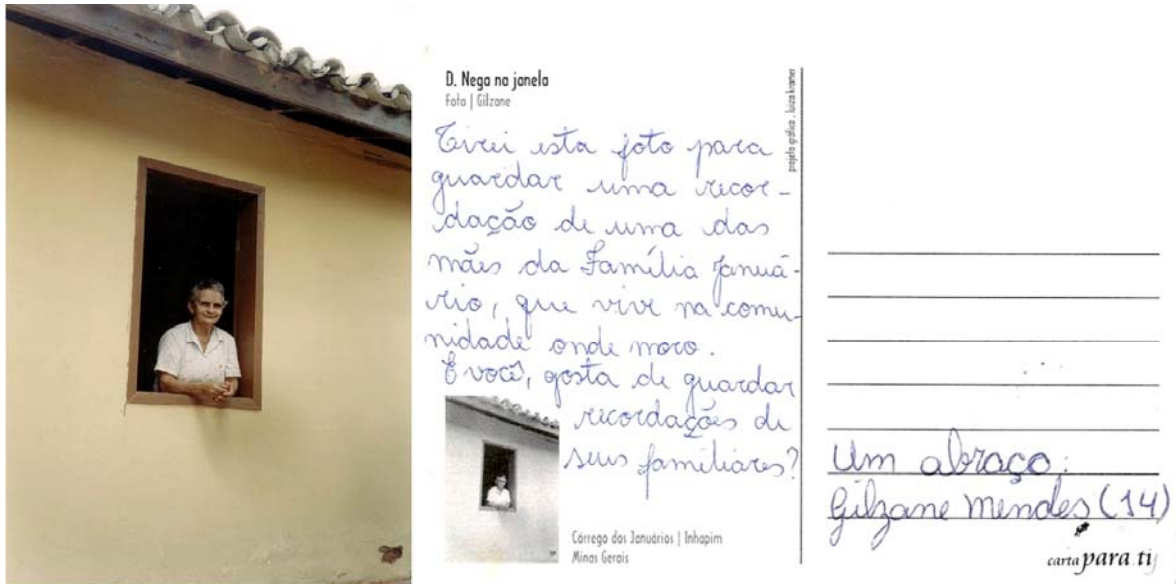 D. Nega na janela
Foto | Gilzane
projeto gráfico . luiza kramer
Tirei esta foto para
guardar uma recor-
dação de uma das
mães da Família Januá-
rio, que vive na comu-
nidade onde moro.
E você, gosta de guardar
recordações de
seus familiares?
Córrego dos Januários | Inhapim
Minas Gerais
Um abraço:
Gilzane Mendes (14)
carta para ti